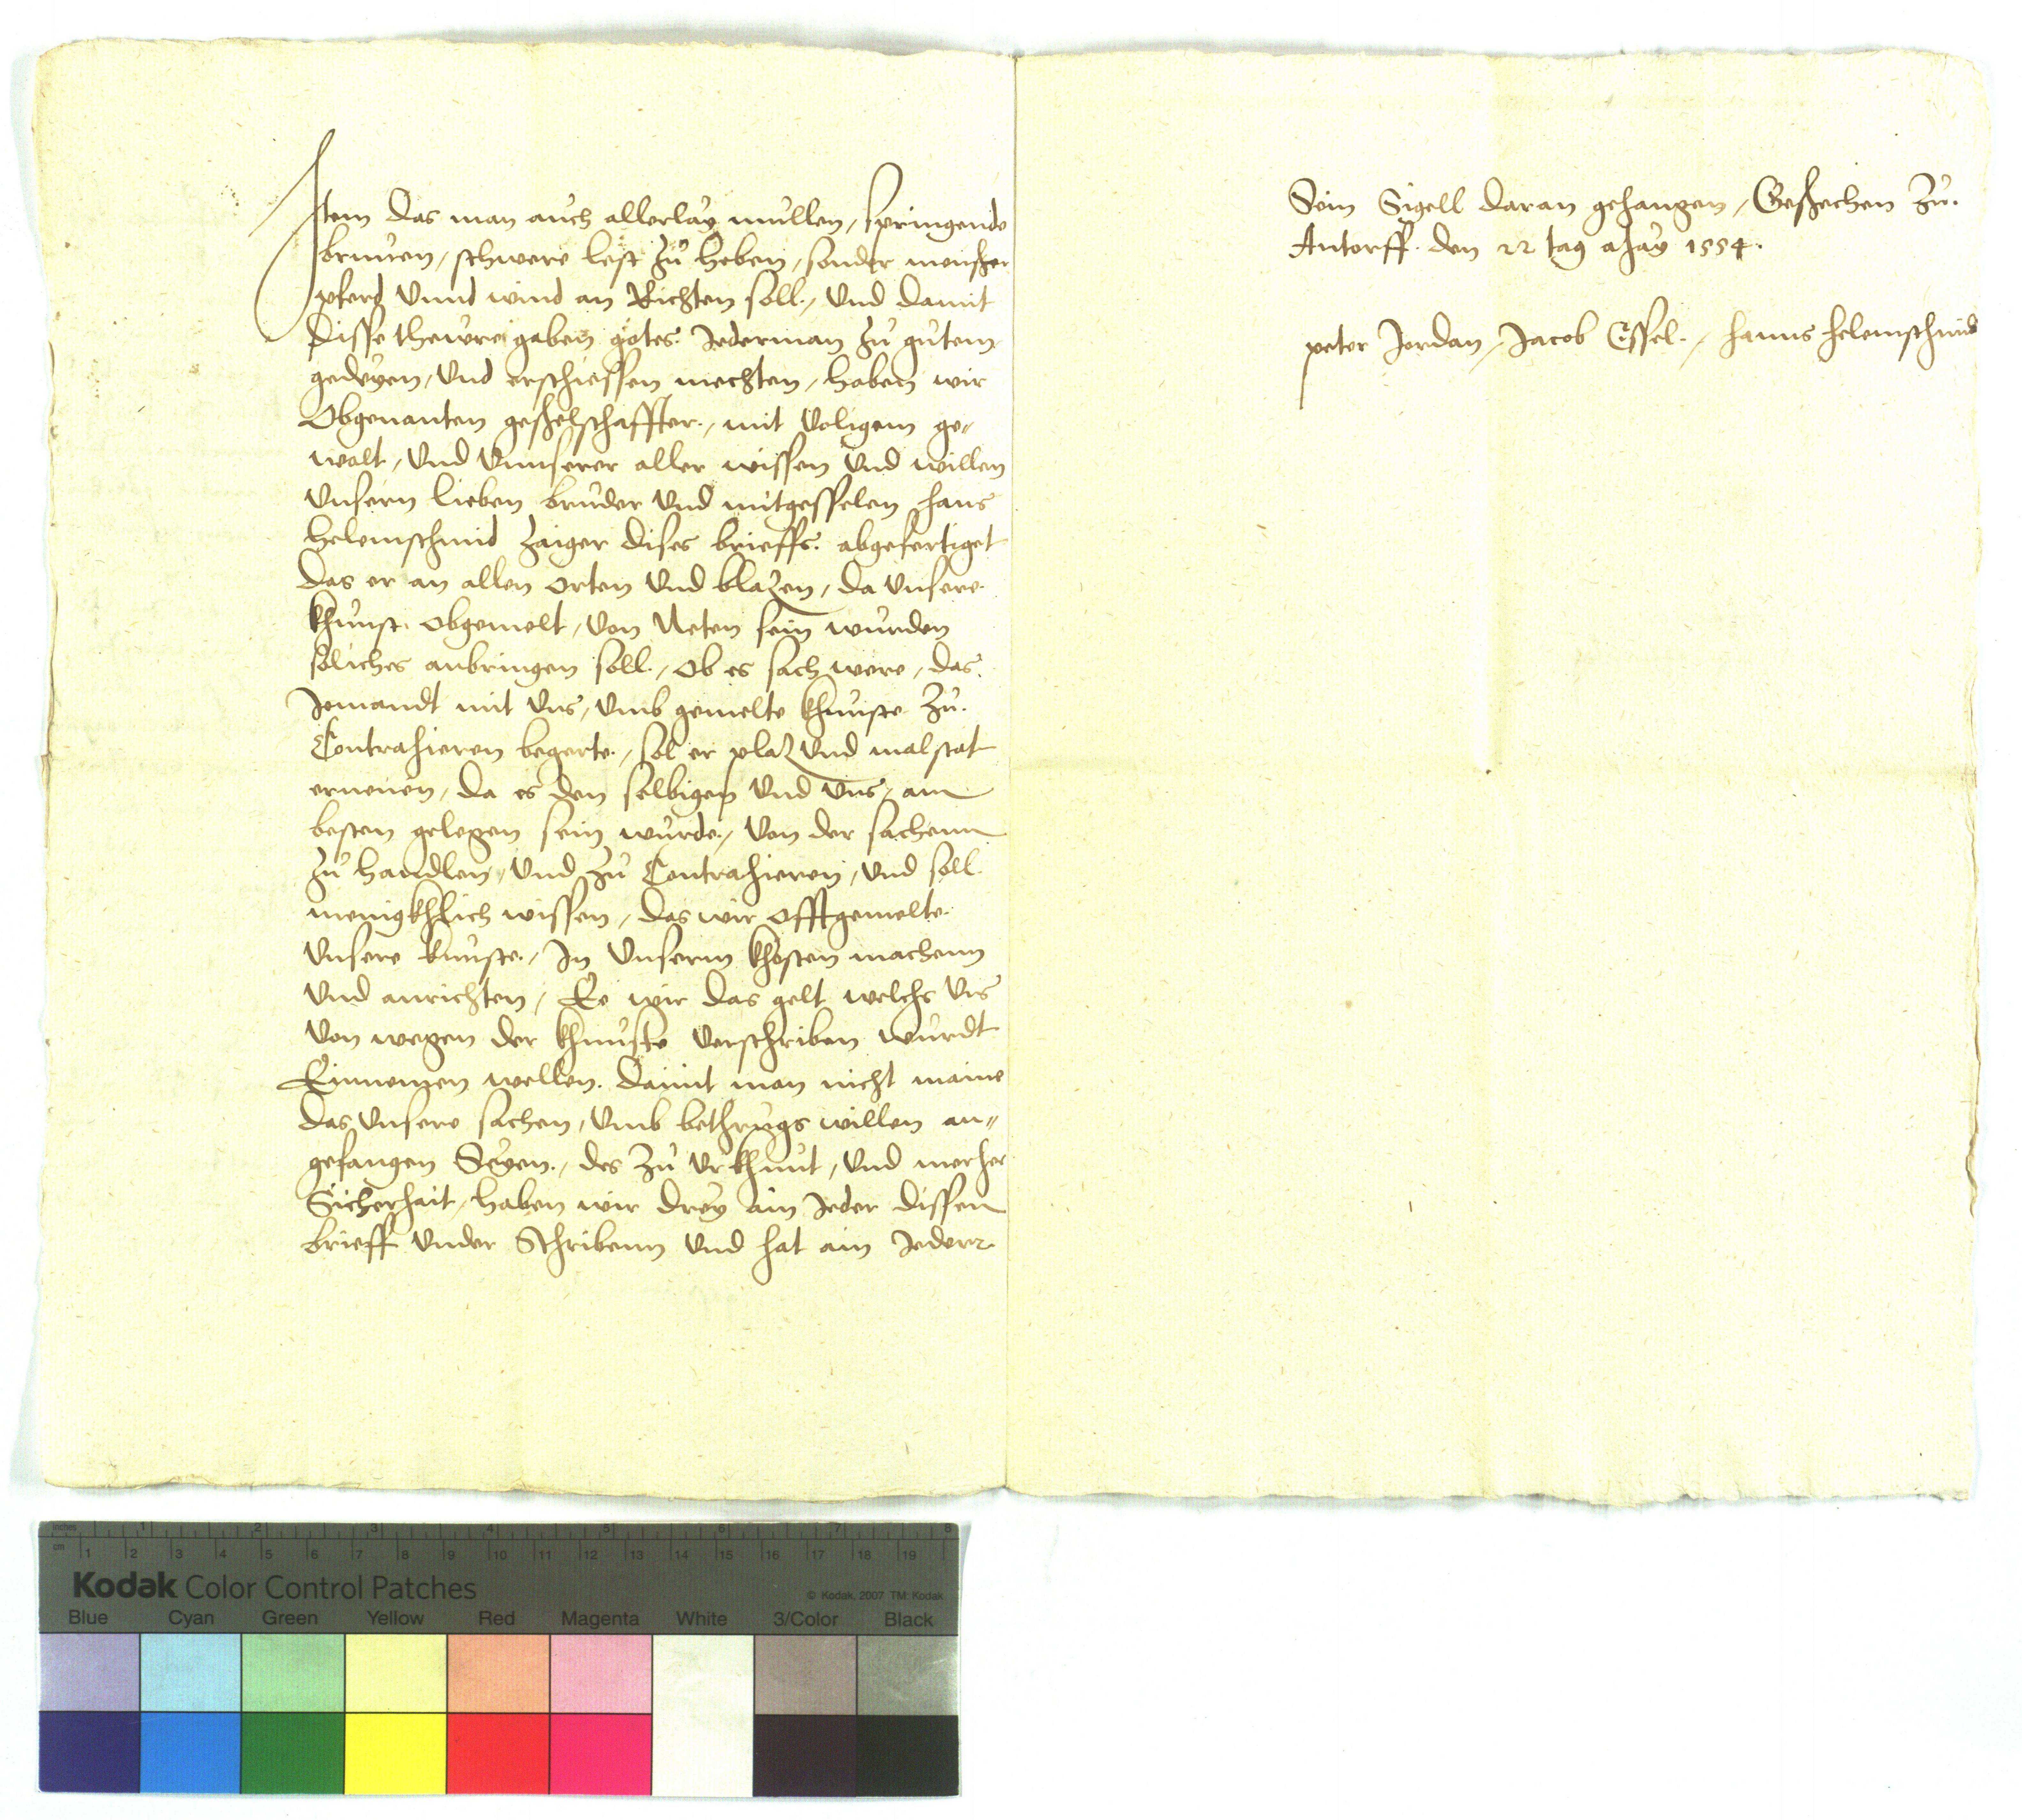 Item das man auch allerlay mullen, springende
brunen, schwere lest zů heben, sonder mensch
pferd vnnd wind an Richten soll, vnd damit
disse thewre gaben gotes. Jederman zů gůtem
gedeyen, vnd erschiessen mechten, haben wir
Obgenanten geselschaffter, mit voligem ge„
walt, vnd vnnserer aller wissen vnd willen
vnsern lieben bruder vnd mitgesselen hans
helemschmid zaiger dises brieffs. abgefertiget
das er an allen orten vnd blazen, da vnsere
khunst obgemelt, von Neten sein wurden
soliches anbringen soll, ob es sach were, das
Jemandt mit vns, vmb gemelte khunste zů
Contrahieren begerte, sol er plaz vnd malstat
ernenen, da es den selbigen vnd vns, am
besten gelegen sein wurde, von der sachenn
zů handlen, vnd zů Contrahieren, vnd soll
menigkhlich wissen, das wir offtgemelte
vnsere kunste, In vnserm khosten machenn
vnd anrichten, Ee wir das gelt welchs vns
von wegen der khunste verschriben wurdt
Einnemen wellen. damit man nicht maine
das vnsere sachen, vmb bethrugs willen an„
gefangen Seyen, des zů vrkhunt, vnd merher
Sicherhait, haben wir drey ain Jeder dissen
brieff vnder Schribenn vnd hat ain Jederr
Sein Sigell daran gehangen, Geschechen Zů
Antorff. den 22 tag May 1554.
peter Jordan, Jacob Essel, hanns helemschmid
inches 1 2 3 4 5 6 7 8
cm 1 2 3 4 5 6 7 8 9 10 11 12 13 14 15 16 17 18 19
Kodak Color Control Patches © Kodak, 2007 TM: Kodak
Blue Cyan Green Yellow Red Magenta White 3/Color Black